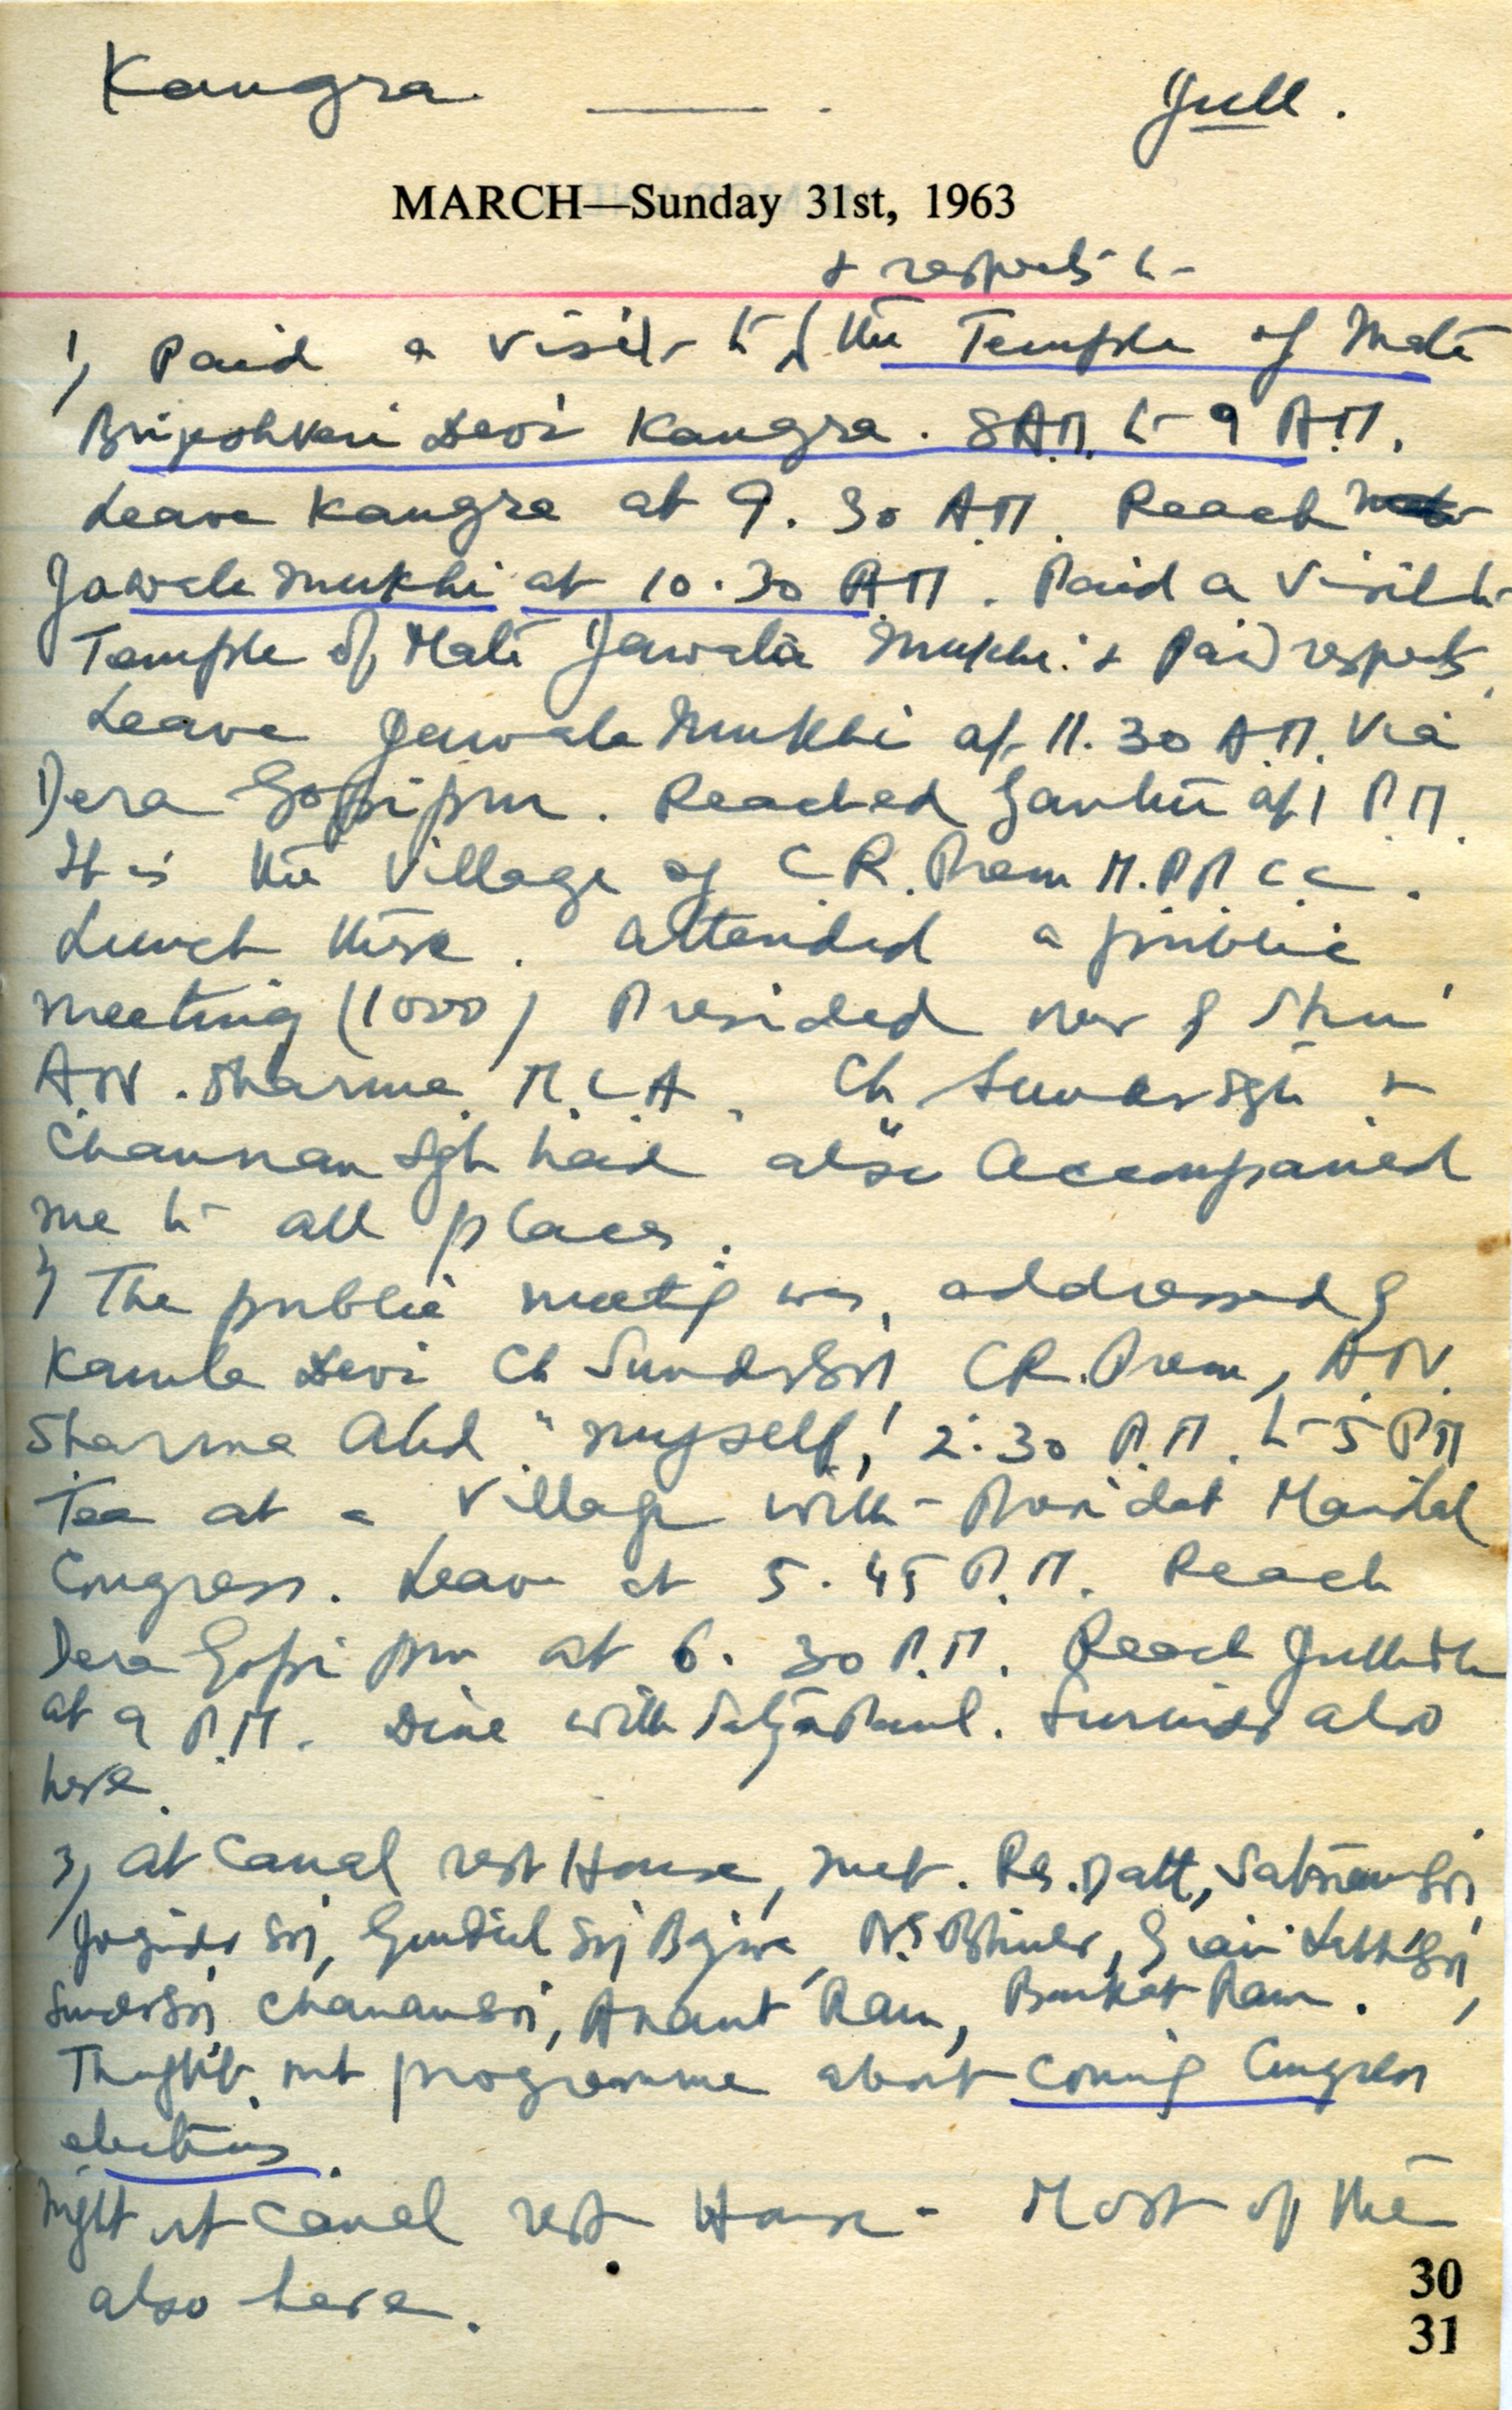 Kangra — . Jull.
MARCH—Sunday 31st, 1963
& respects to
1) Paid a visit to the Temple of Mata
Brijeshvari Devi Kangra. 8 A.M. to 9 A.M.
Leave Kangra at 9.30 A.M. Reach
Jawala Mukhi at 10.30 A.M. Paid a visit to
Temple of Mata Jawala Mukhi & Paid respects.
Leave Jawala Mukhi at 11.30 A.M. Via
Dera Gopipur. Reached at 1 P.M.
It is the Village of C.R. Prem M.P.P.C.C.
Lunch there. Attended a public
meeting (1000) Presided over by Shri
A.N. Sharma M.L.A. Ch Sunder Sgh &
Channan Sgh had also accompanied
me to all places.
2) The public meeting was addressed by
Kamla Devi Ch Sunder Sgh, C.R. Prem, A.N.
Sharma And "myself," 2.30 P.M. to 5 PM
Tea at a Village with President Mandal
Congress. Leave at 5.45 P.M. Reach
Dera Gopipur at 6.30 P.M. Reach Jullundur
at 9 P.M. Dine with Satya Paul. Surinder also
here.
3) At Canal rest House, met. R.S. Datt, Satnam Sgh,
Joginder Sgh, Gurdial Sgh Bajwa,
Sunder Sgh, Chanan Sgh, Anant Ram, Barkat Ram.
Thought out programme about coming Congress
elections.
Night at Canal rest House - Most of the
also here.
30
31